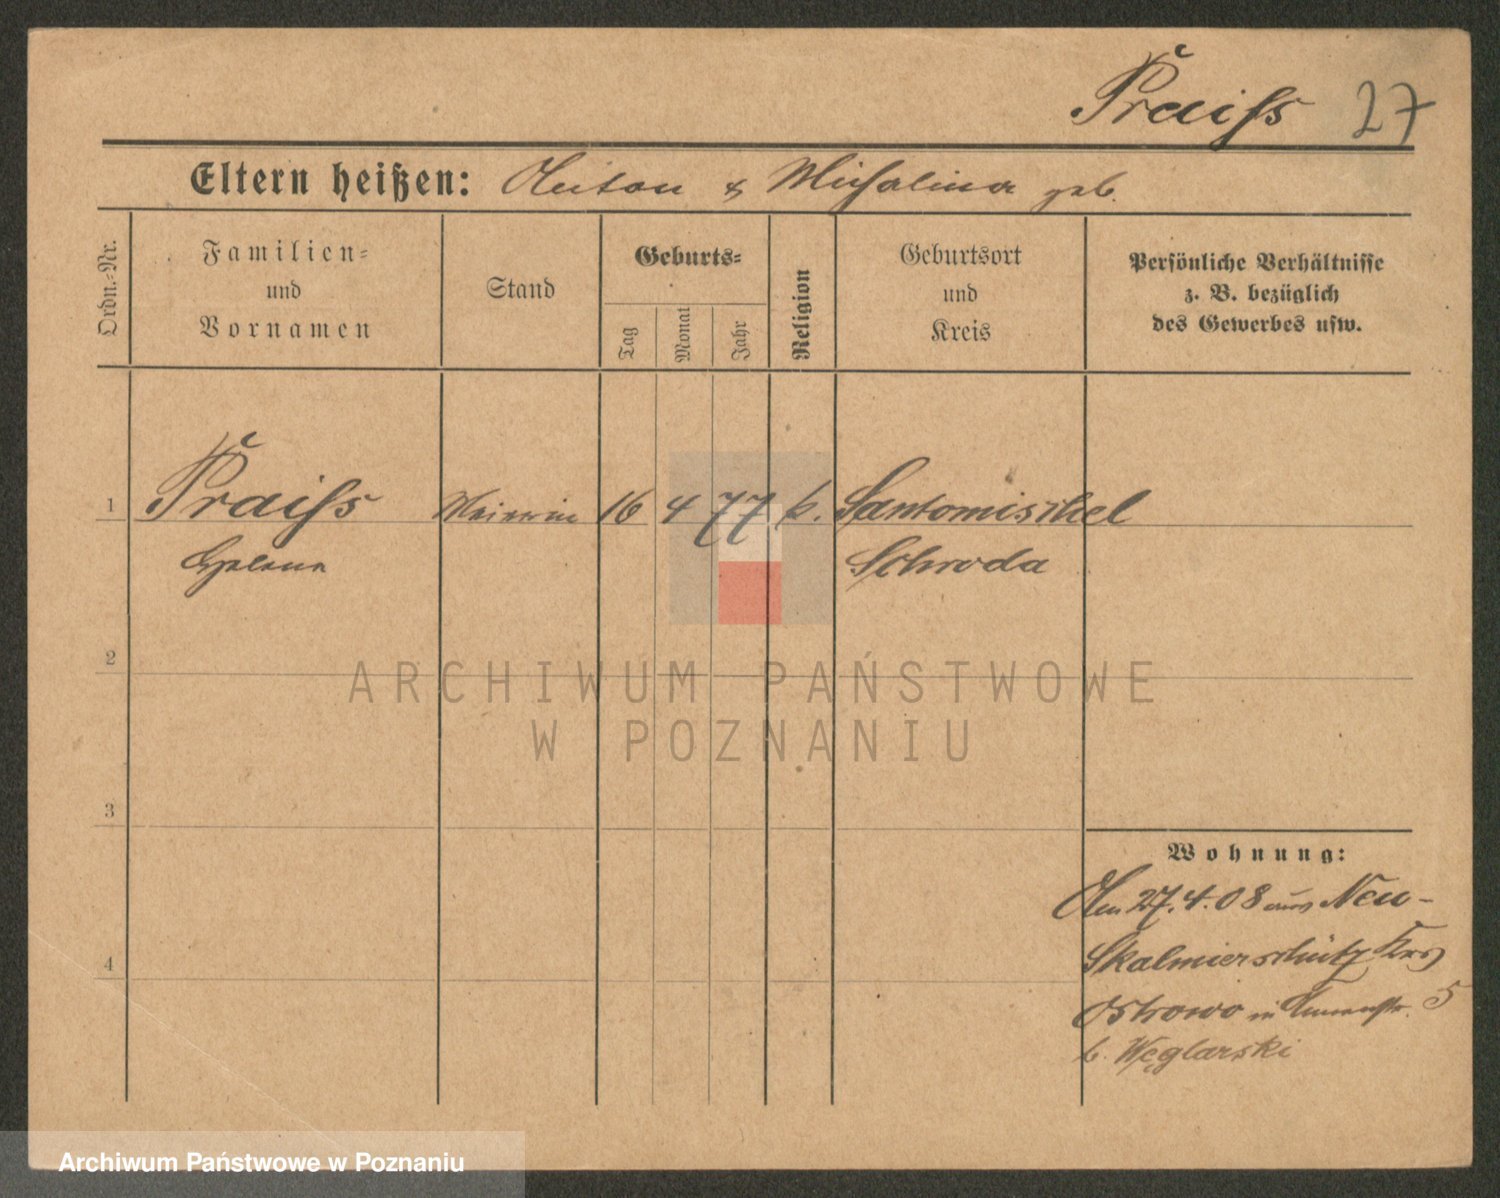 Praiss 27
Eltern heißen: Anton & Michalina geb.
Ordn.-Nr.
Familien-
und
Vornamen
Stand
Geburts-
Tag
Monat
Jahr
Religion
Geburtsort
und
Kreis
Persönliche Verhältnisse
z. B. bezüglich
des Gewerbes usw.
1 Praiss 16 4 77 k. Santomischel
Helena Schroda
2
3
4
Wohnung:
Am 27.4.08 aus Neu-
Skalmierschütz Krs
Ostrowo in 5
b. Węglarski
ARCHIWUM PAŃSTWOWE
W POZNANIU
Archiwum Państwowe w Poznaniu